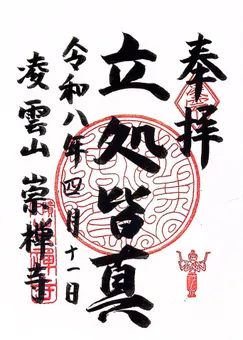 奉拝
立処皆真
令和八年四月十一日
凌雲山 崇禅寺